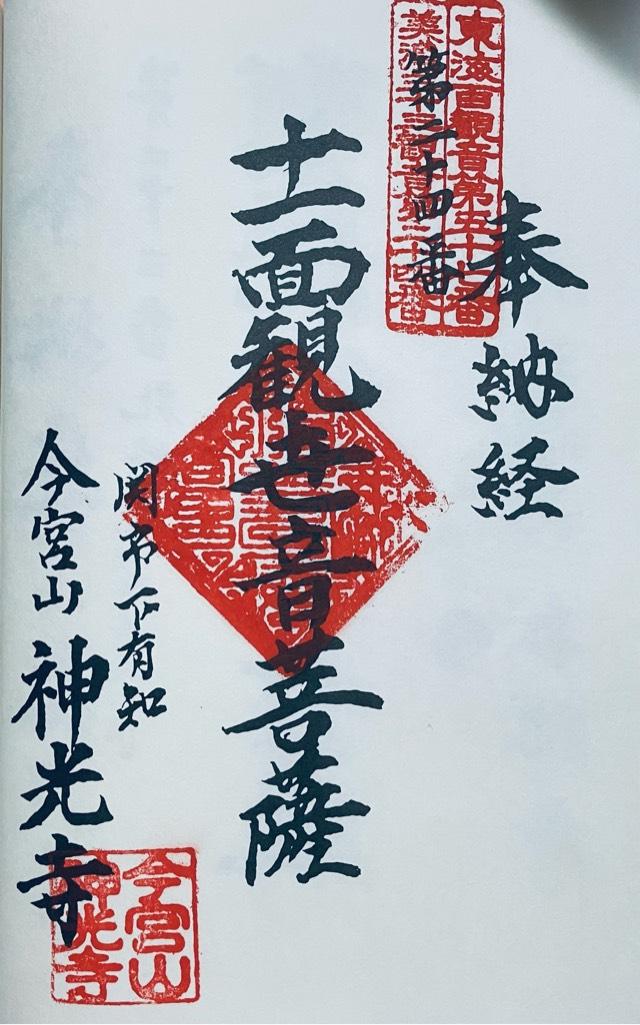 東海百観音第五十七番
美濃三十三観音第二十四番
第二十四番
奉納経
十一面観世音菩薩
関市下有知
今宮山 神光寺
今宮山
神光寺